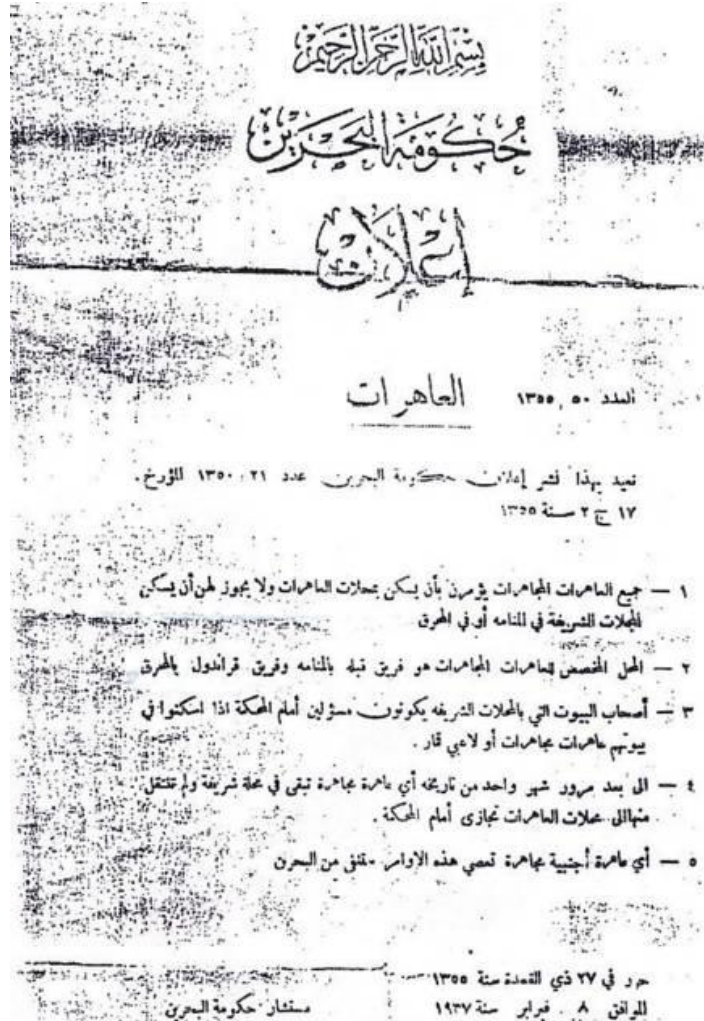 بسم الله الرحمن الرحيم
حكومة البحرين
إعلان
العدد ٥٠ ، ١٣٥٥ العاهرات
نعيد بهذا نشر إعلان حكومة البحرين عدد ٢١ ، ١٣٥٠ المؤرخ .
١٧ ج ٢ سنة ١٣٥٥
١ — جميع العاهرات المجاهرات يؤمرن بأن يسكن بمحلات العاهرات ولا يجوز لهن أن يسكن
المحلات الشريفة في المنامه أو في المحرق
٢ — المحل المخصص للعاهرات المجاهرات هو فريق قبله بالمنامه وفريق قراندول بالمحرق
٣ — أصحاب البيوت التي بالمحلات الشريفه يكونون مسؤلين أمام المحكمة اذا اسكنوا في
بيوتهم عاهرات مجاهرات أو لاعبي قمار .
٤ — الى بعد مرور شهر واحد من تاريخه أي عاهرة مجاهرة تبقى في محلة شريفة ولم تنتقل
منها الى محلات العاهرات تجازى أمام المحكمة .
٥ — أي عاهرة أجنبية مجاهرة تعصي هذه الاوامر ستنفى من البحرين
حرر في ٢٧ ذي القعدة سنة ١٣٥٥
الموافق ٨ فبراير سنة ١٩٣٧ مستشار حكومة البحرين